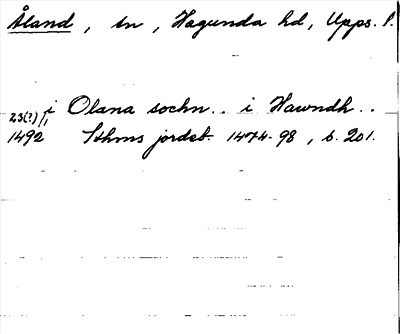 Åland, sn, Hagunda hd, Upps. l.
23(?)/1 i Olana sochn.. i Hawndh..
1492 Sthms jordeb. 1474-98, s. 201.